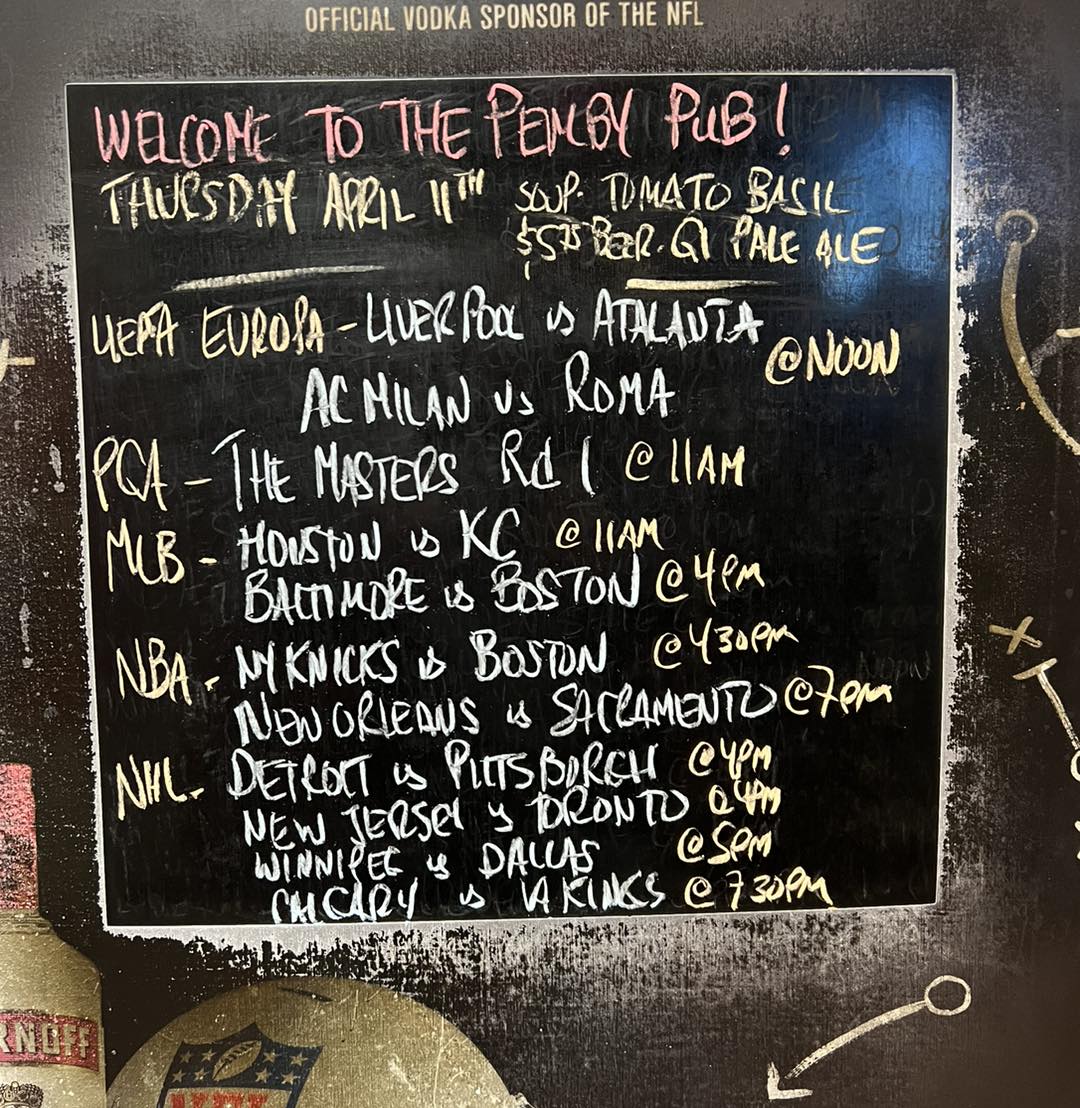 OFFICIAL VODKA SPONSOR OF THE NFL
WELCOME TO THE PEMBY PUB!
THURSDAY APRIL 11TH SOUP. TOMATO BASIL
$5.75 BEER. GI PALE ALE
UEFA EUROPA - LIVERPOOL vs ATALANTA
@NOON
AC MILAN vs ROMA
PGA - THE MASTERS Rd 1 @ 11AM
MLB - HOUSTON vs KC @ 11AM
BALTIMORE vs BOSTON @ 4PM
NBA - NY KNICKS vs BOSTON @ 430PM
NEW ORLEANS vs SACRAMENTO @ 7PM
NHL - DETROIT vs PITTSBURGH @ 4PM
NEW JERSEY vs TORONTO @ 4PM
WINNIPEG vs DALLAS @ 5PM
CALGARY vs LA KINGS @ 730PM
RNOFF